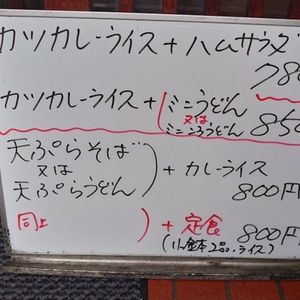 カツカレーライス+ハムサラダ
78
カツカレーライス+(ミニうどん
又は
ミニころうどん 850
天ぷらそば
又は
天ぷらうどん
)+カレーライス
800円
同上 )+定食 800円
(小鉢2品・ライス)